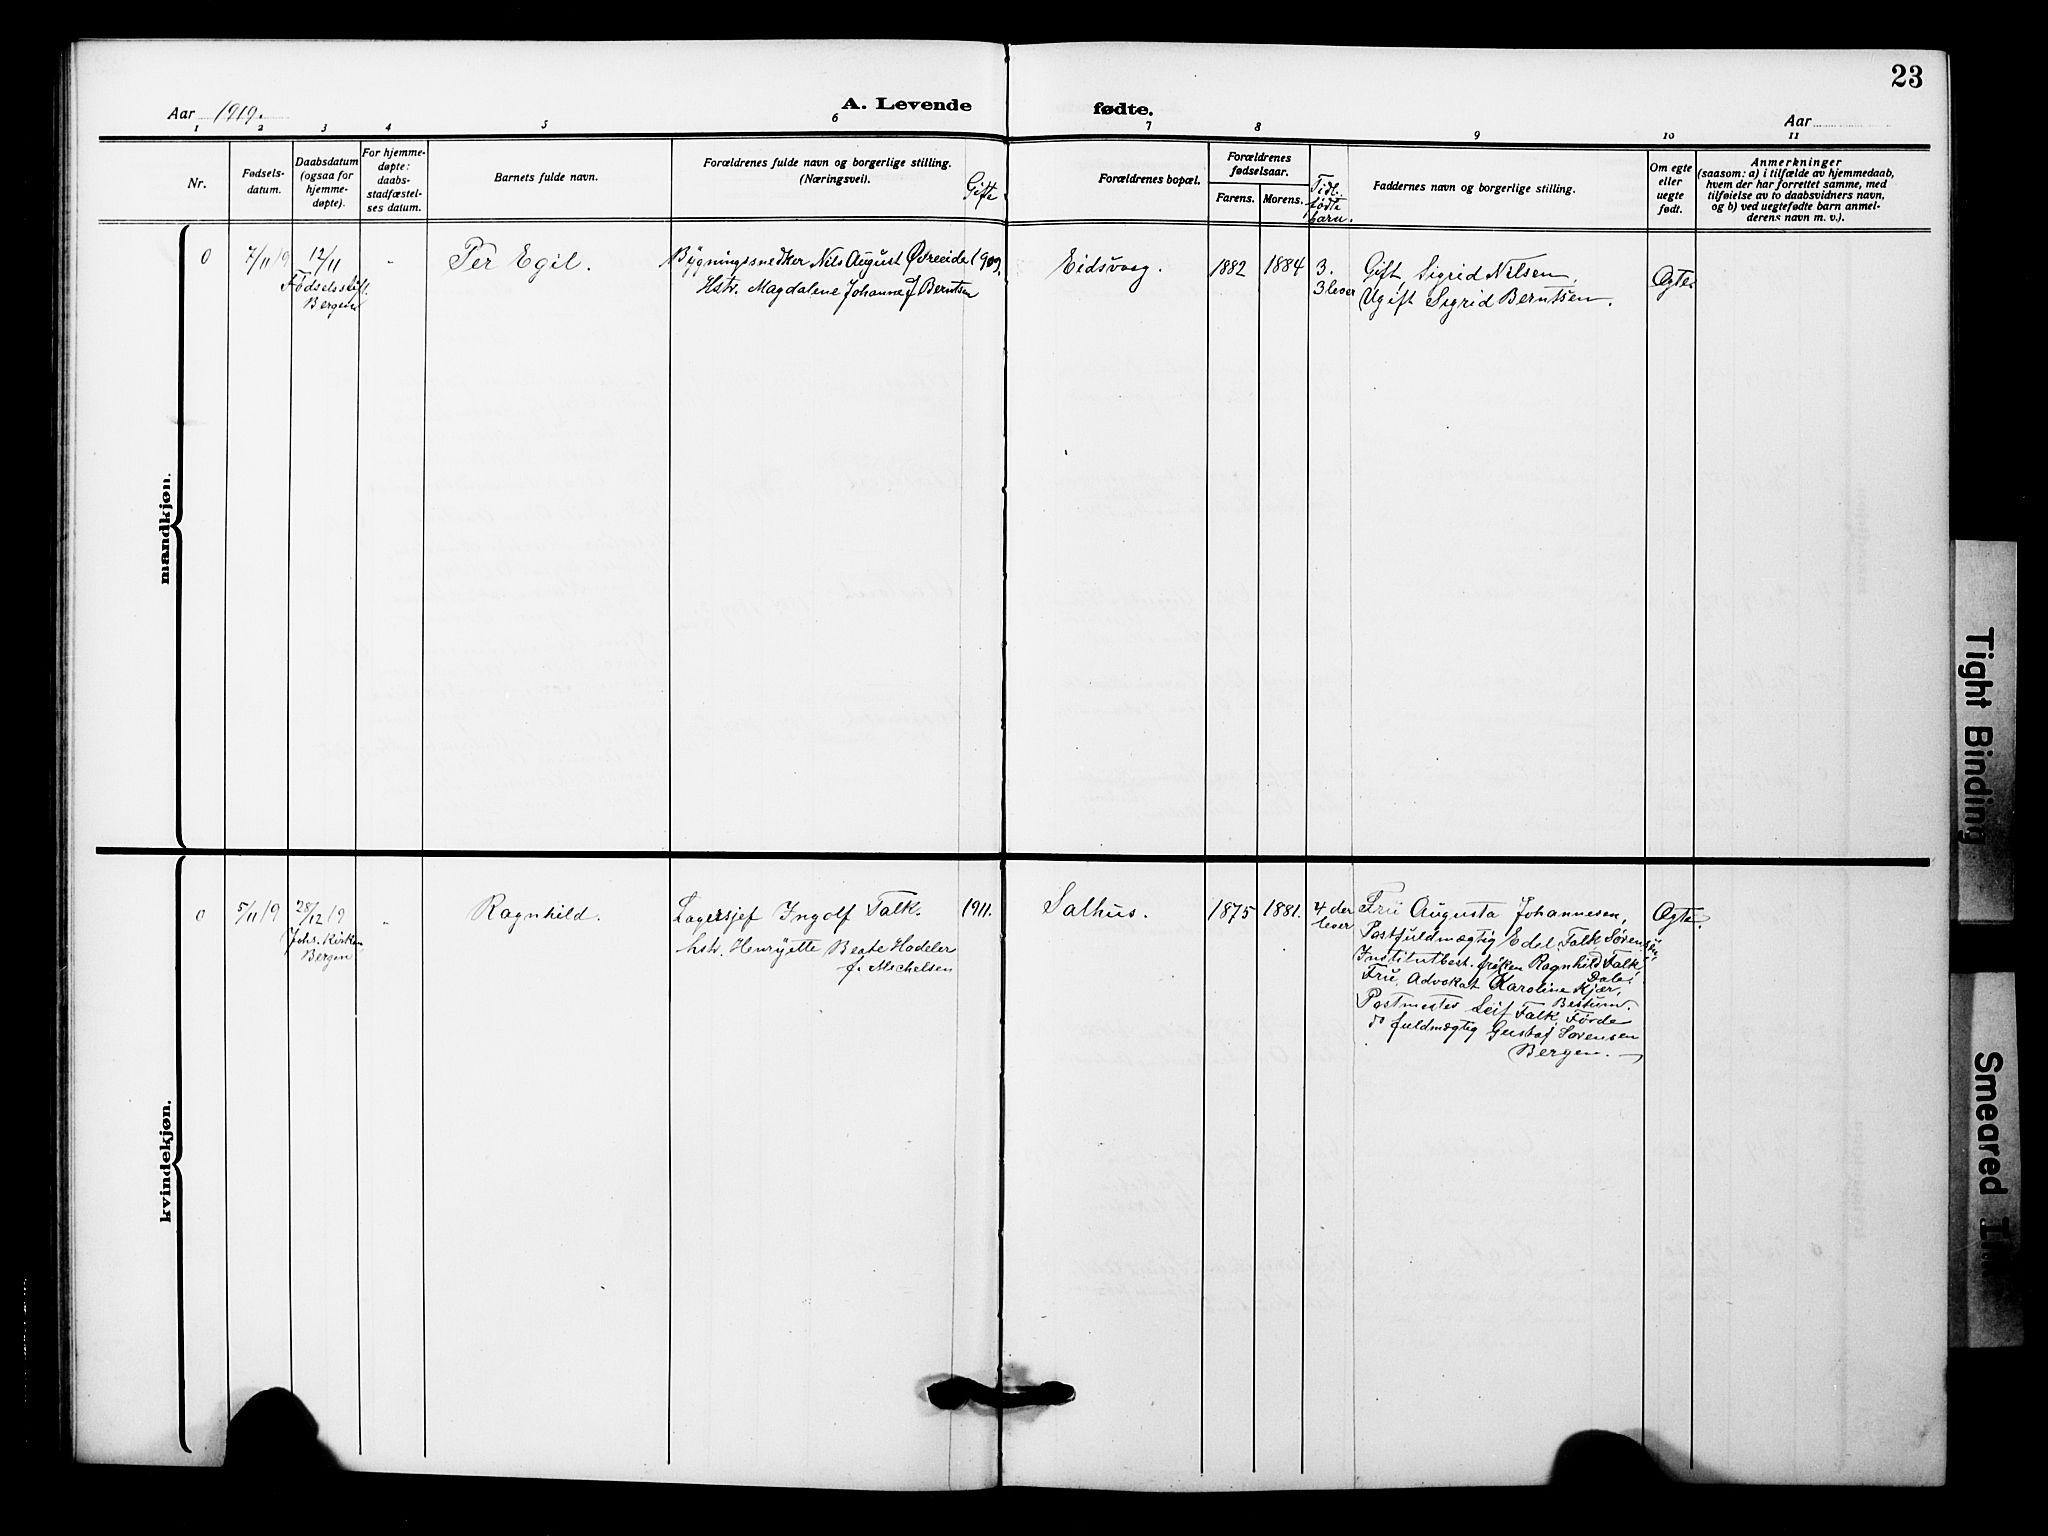 23
Aar 1919.
A. Levende fødte.
Aar
1 2 3 4 5 6 7 8 9 10 11
Nr.
Fødsels-
datum.
Daabsdatum
(ogsaa for
hjemme-
døpte).
For hjemme-
døpte:
daabs-
stadfæstel-
ses datum.
Barnets fulde navn.
Forældrenes fulde navn og borgerlige stilling.
(Næringsvei).
Gifte
Forældrenes bopæl.
Forældrenes
fødselsaar.
Farens. Morens.
Tidl.
fødte
barn.
Faddernes navn og borgerlige stilling.
Om egte
eller
uegte
født.
Anmerkninger
(saasom: a) i tilfælde av hjemmedaab,
hvem der har forrettet samme, med
tilføielse av to daabsvidners navn,
og b) ved uegtefødte barn anmel-
derens navn m. v.).
mandkjøn.
0
7/11 19
12/11
Fødselsstift.
Bergen
"
Per Egil.
Bygningssnedker Nils August Øvreeide
Hstr. Magdalene Johanne f Berntsen
1909.
Eidsvaag.
1882
1884
3.
3 lever
Gift, Sigrid Nilsen,
Ugift Sigrid Berntsen.
Ægte
kvindekjøn.
0
5/11 19
28/12 19
Johs. Kirken
Bergen
"
Ragnhild.
Lagersjef Ingolf Falk.
hstr. Henryette Beate Hodeler
f. Michelsen
1911.
Salhus.
1875
1881.
4 der
lever
Frü Augusta Johannesen,
Postfuldmægtig Edel Falk Sørensen,
Institutbest. frøken Ragnhild Falk,
Dale.
Frü, Advokat Karoline Kjær,
Bestum.
Postmester Leif Falk, Førde
do fuldmægtig Gustaf Sørensen
Bergen. —
Ægte.
Tight Binding
Smeared